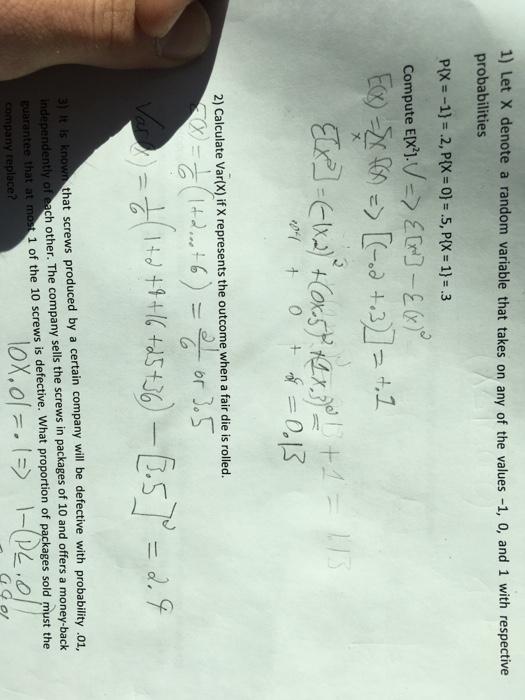 1) Let X denote a random variable that takes on any of the values -1, 0, and 1 with respective
probabilities
P{X = -1} = .2, P{X = 0} = .5, P{X = 1} = .3
Compute E[X²]. V => E[X²] - E(X)²
E(X) = Σx f(x) => [(-.2 + .3)] = +.1
E[X²] = (-1x.2)² + (0x.5)² + (1x.3)² =
.04 + 0 + = 0.13
2) Calculate Var(X) if X represents the outcome when a fair die is rolled.
E(X) = 1/6 (1+2...+6) = 21/6 or 3.5
Var(X) = 1/6 (1+2+9+16+25+36) - [3.5]² = 2.9
3) It is known that screws produced by a certain company will be defective with probability .01,
independently of each other. The company sells the screws in packages of 10 and offers a money-back
guarantee that at most 1 of the 10 screws is defective. What proportion of packages sold must the
company replace?
10X.01 = .1 =>